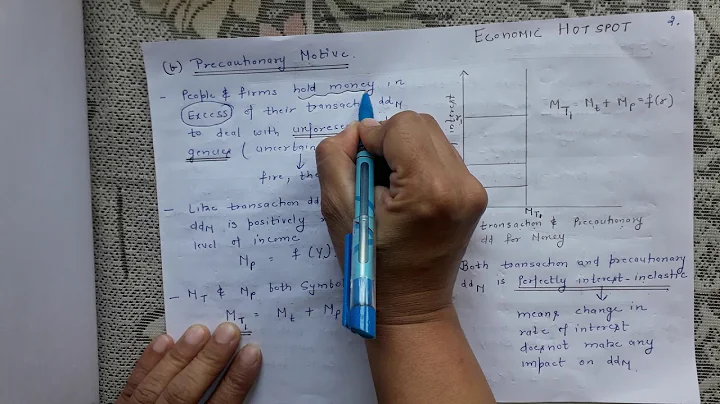 ECONOMIC HOTSPOT 2.
(b) Precautionary Motive.
- People & firms hold money in
Excess of their transacti ddM
to deal with unfores
gencies ( uncertain
fire, the
- Like transaction dd
ddM is positively
level of income
Mp = f (Y)
- MT & Mp both Symbol
MT1 = Mt + Mp
interest
r
MT1 = Mt + Mp = f(r)
MT1
transaction & Precautionary
dd for Money
Both transaction and precautionary
ddM is Perfectly interest-inelastic
means change in
rate of interest
does not make any
impact on ddM